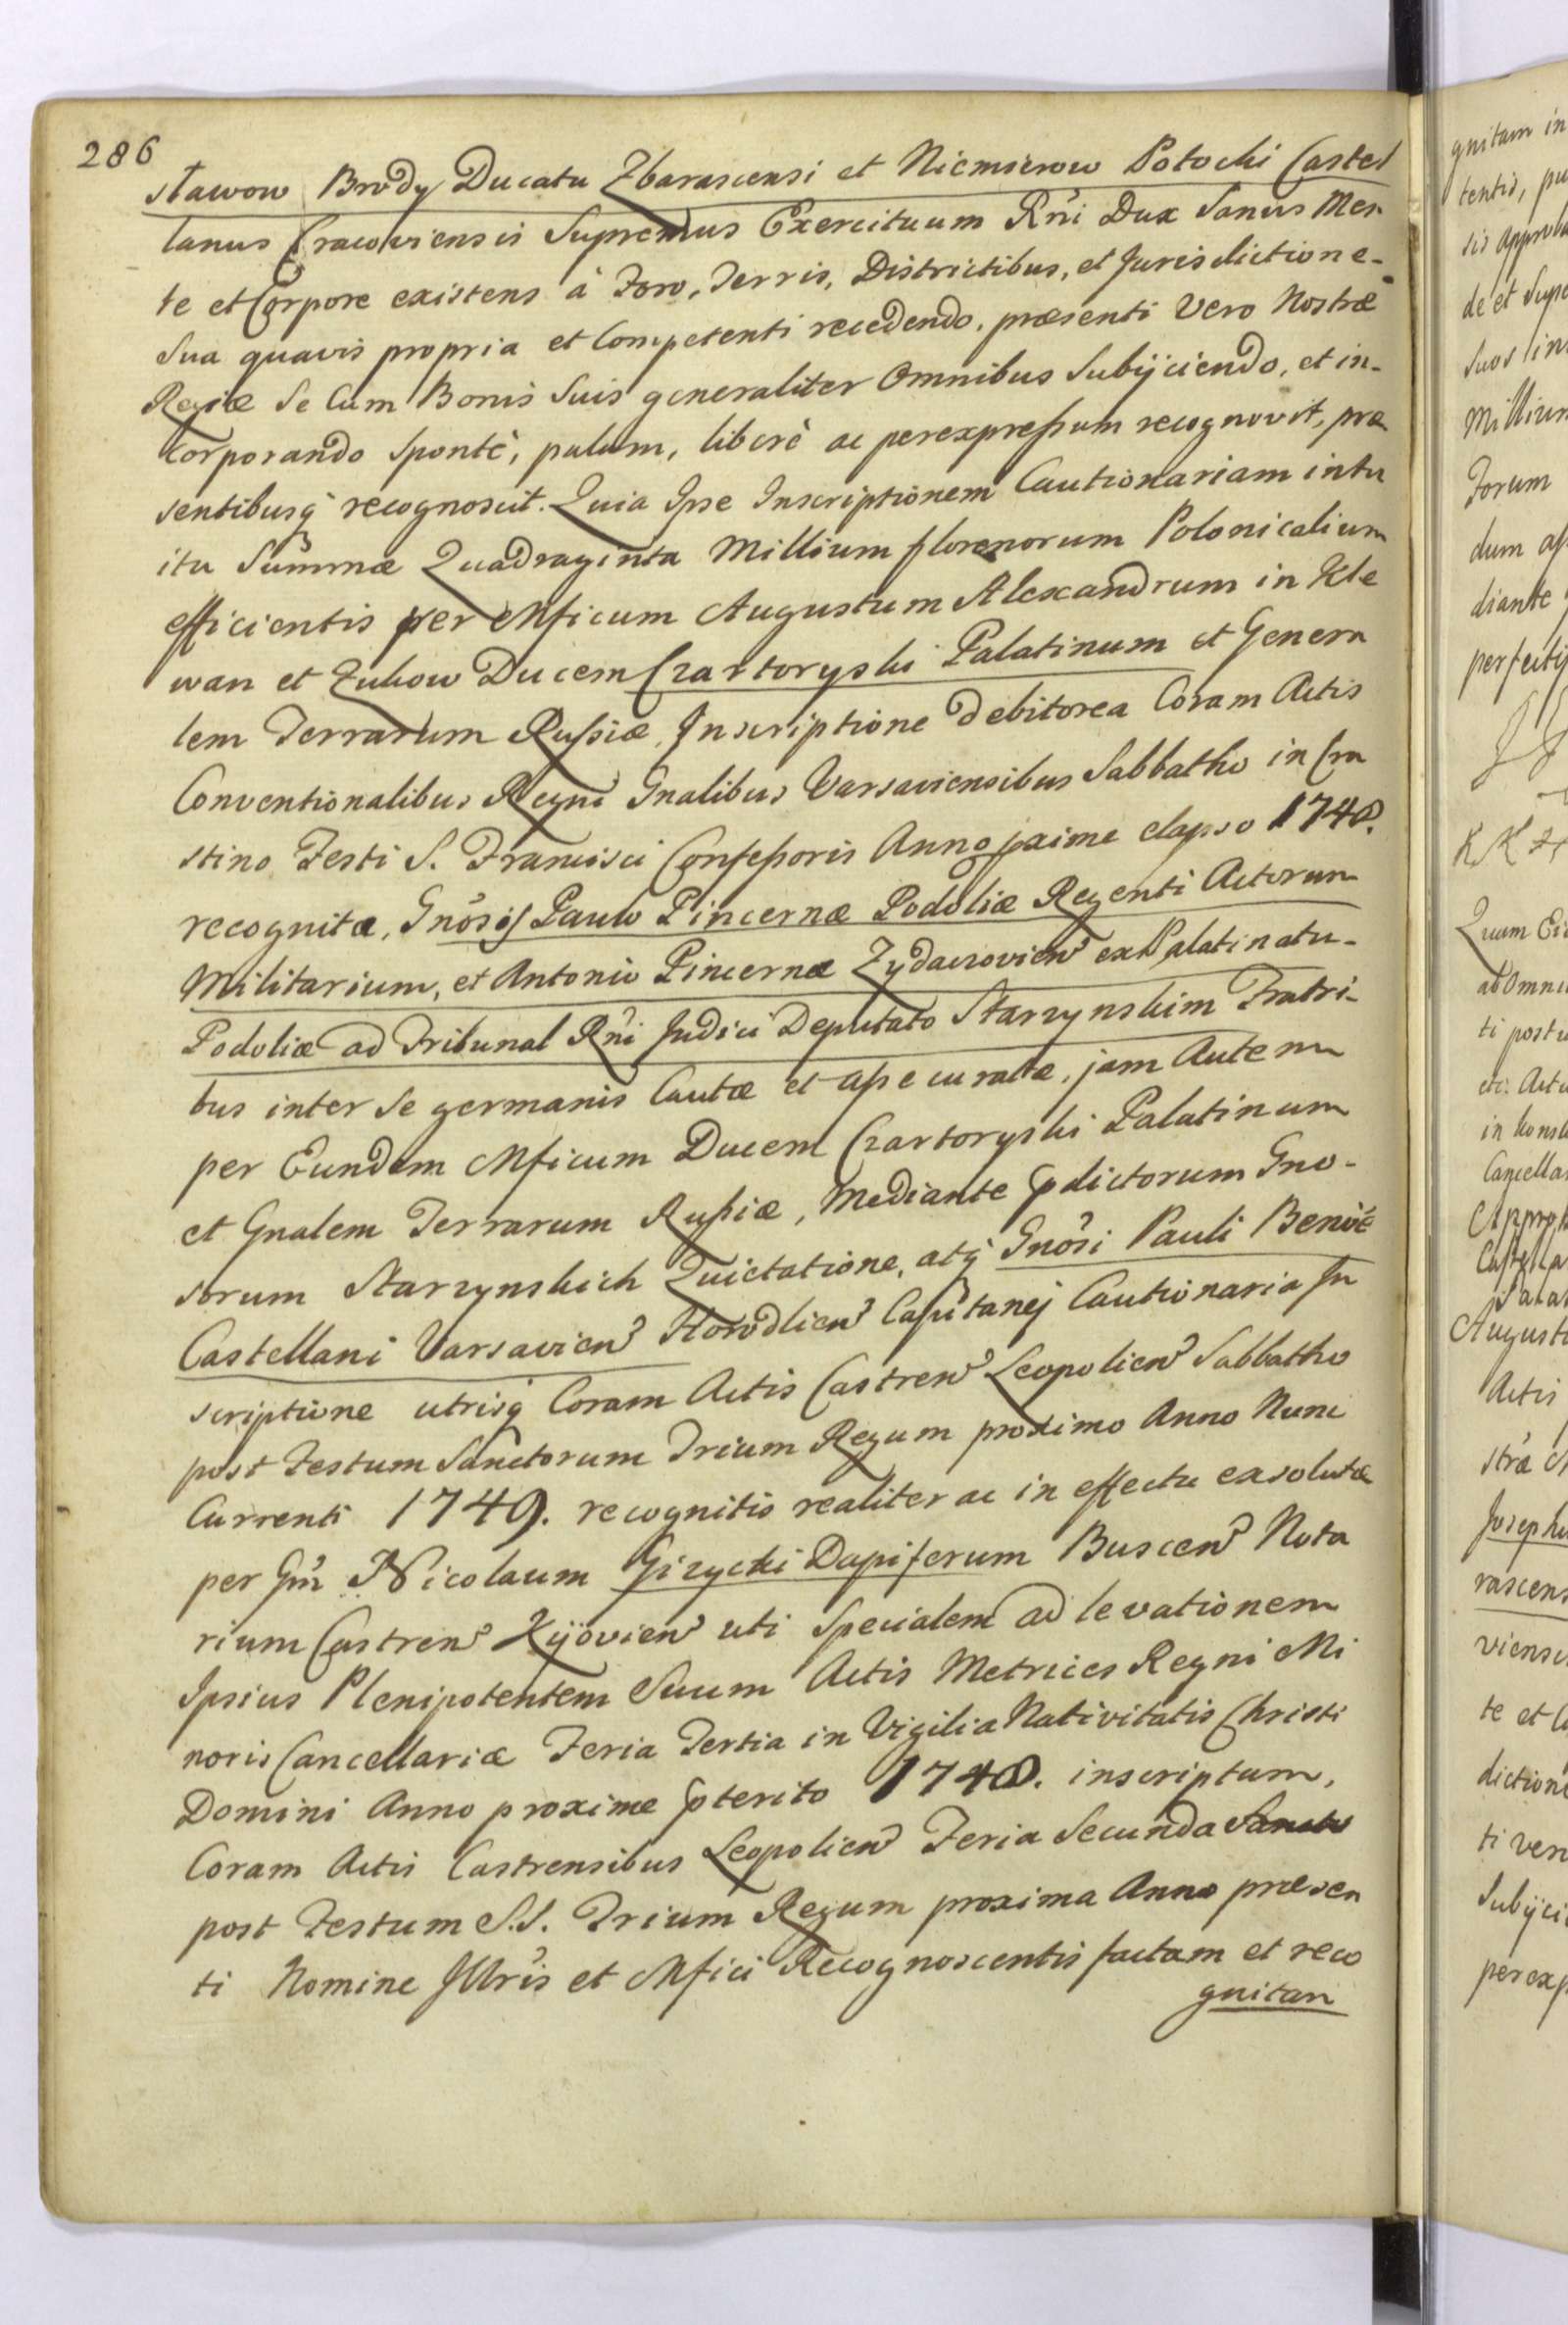 286
stawow Brody Ducatu Zbarascensi et Niemierow Potocki Castel
lanus Cracoviensis Supremus Exercituum Rñi Dux Sanus Men
te et Corpore existens à Foro, Terris, Districtibus, et Jurisdictione-
Sua quavis propria et Competenti recedendo, præsenti Vero Nostræ
Regiæ Se Cum Bonis Suis generaliter Omnibus Subijciendo, et in-
corporando Spontè, palam, liberè ac perexpressum recognovit, præ
sentibusq recognoscit. Quia Ipse Inscriptionem Cautionariam intu
itu Summæ Quadraginta Millium florenorum Polonicalium
efficientis per Mficum Augustum Alexandrum in Kle
wan et Zukow Ducem Czartoryski Palatinum et Genera
lem Terrarum Russiæ, Inscriptione debitorea Coram Actis
Conventionalibus Regni Gnalibus Varsaviensibus Sabbatho in Cra
stino Festi S. Francisci Confessoris Anno pxime elapso 1748.
recognitæ, Gnosis Paulo Pincernæ Podoliæ Regenti Actorum
Militarium, et Antonio Pincernæ Zydaczovien ex Palatinatu-
Podoliæ ad Tribunal Rñi Judici Deputato Starzynskim Fratri-
bus inter Se germanis Cautæ et assecuratæ, jam Autem
per Eundem Mficum Ducem Czartoryski Palatinum
et Gnalem Terrarum Russiæ, Mediante pdictorum Gno-
sorum Starzynskich Quietatione, atq Gnosi Pauli Benoe
Castellani Varsavien Horodlien Capitanej Cautionaria In
scriptione utrisq Coram Actis Castren Leopolien Sabbatho
post Festum Sanctorum Trium Regum proximo Anno Nunc
Currenti 1749. recognitis realiter ac in effectu exsolutæ
per Gm Nicolaum Gizycki Dapiferum Buscen Nota
rium Castren Kijovien uti Specialem ad levationem
Ipsius Plenipotentem Suum Actis Metrices Regni Mi
noris Cancellariæ Feria Tertia in Vigilia Nativitatis Christi
Domini Anno proxime pterito 1748. inscriptum,
Coram Actis Castrensibus Leopolien Feria Secunda
post Festum S.S. Trium Regum proxima Anno præsen
ti Nomine Illris et Mfici Recognoscentis factam et reco
gnitam
gnitam in
tentis, pu
sis approba
de et Supe
Suos in
Millium
Forum
dum
diante
Quam
ab Omni
ti post
etc. Actu
Cancella
Augusto
Actis
Josephu
rascens
viensi
te et
dictione
ti vero
Subijci
perexp